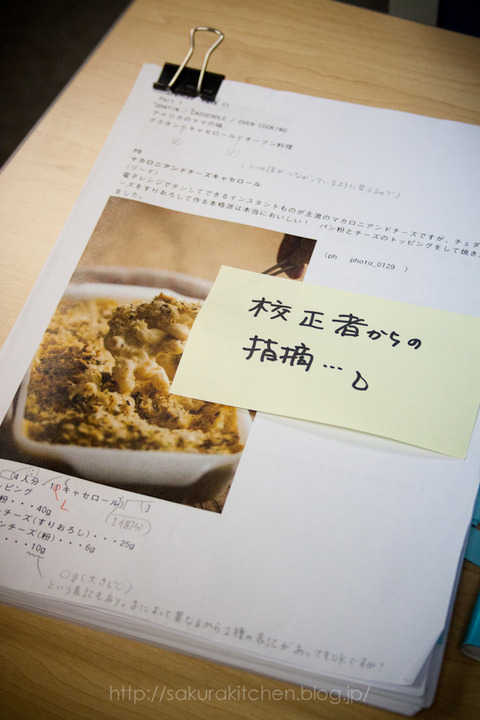 GRATIN / CASSEROLE / OVEN COOKING
アメリカのママの味
グラタン・キャセロール・オーブン料理
P8
マカロニアンドチーズキャセロール
(リード)
電子レンジでチンしてできるインスタントものが主流のマカロニアンドチーズですが、チェダ
ーズをすりおろして作る本格派は本当においしい! パン粉とチーズのトッピングをして焼き
ました。
(ph photo_0129 )
校正者からの
指摘…
(4人分 1キャセロール)
ッピング
粉・・・40g
チーズ(すりおろし)・・・25g
ンチーズ(粉)・・・6g
・・・・10g
○g(大さじ○)
という表記もあり。手によって異なるから2種の表記があってもOKですか?
http://sakurakitchen.blog.jp/